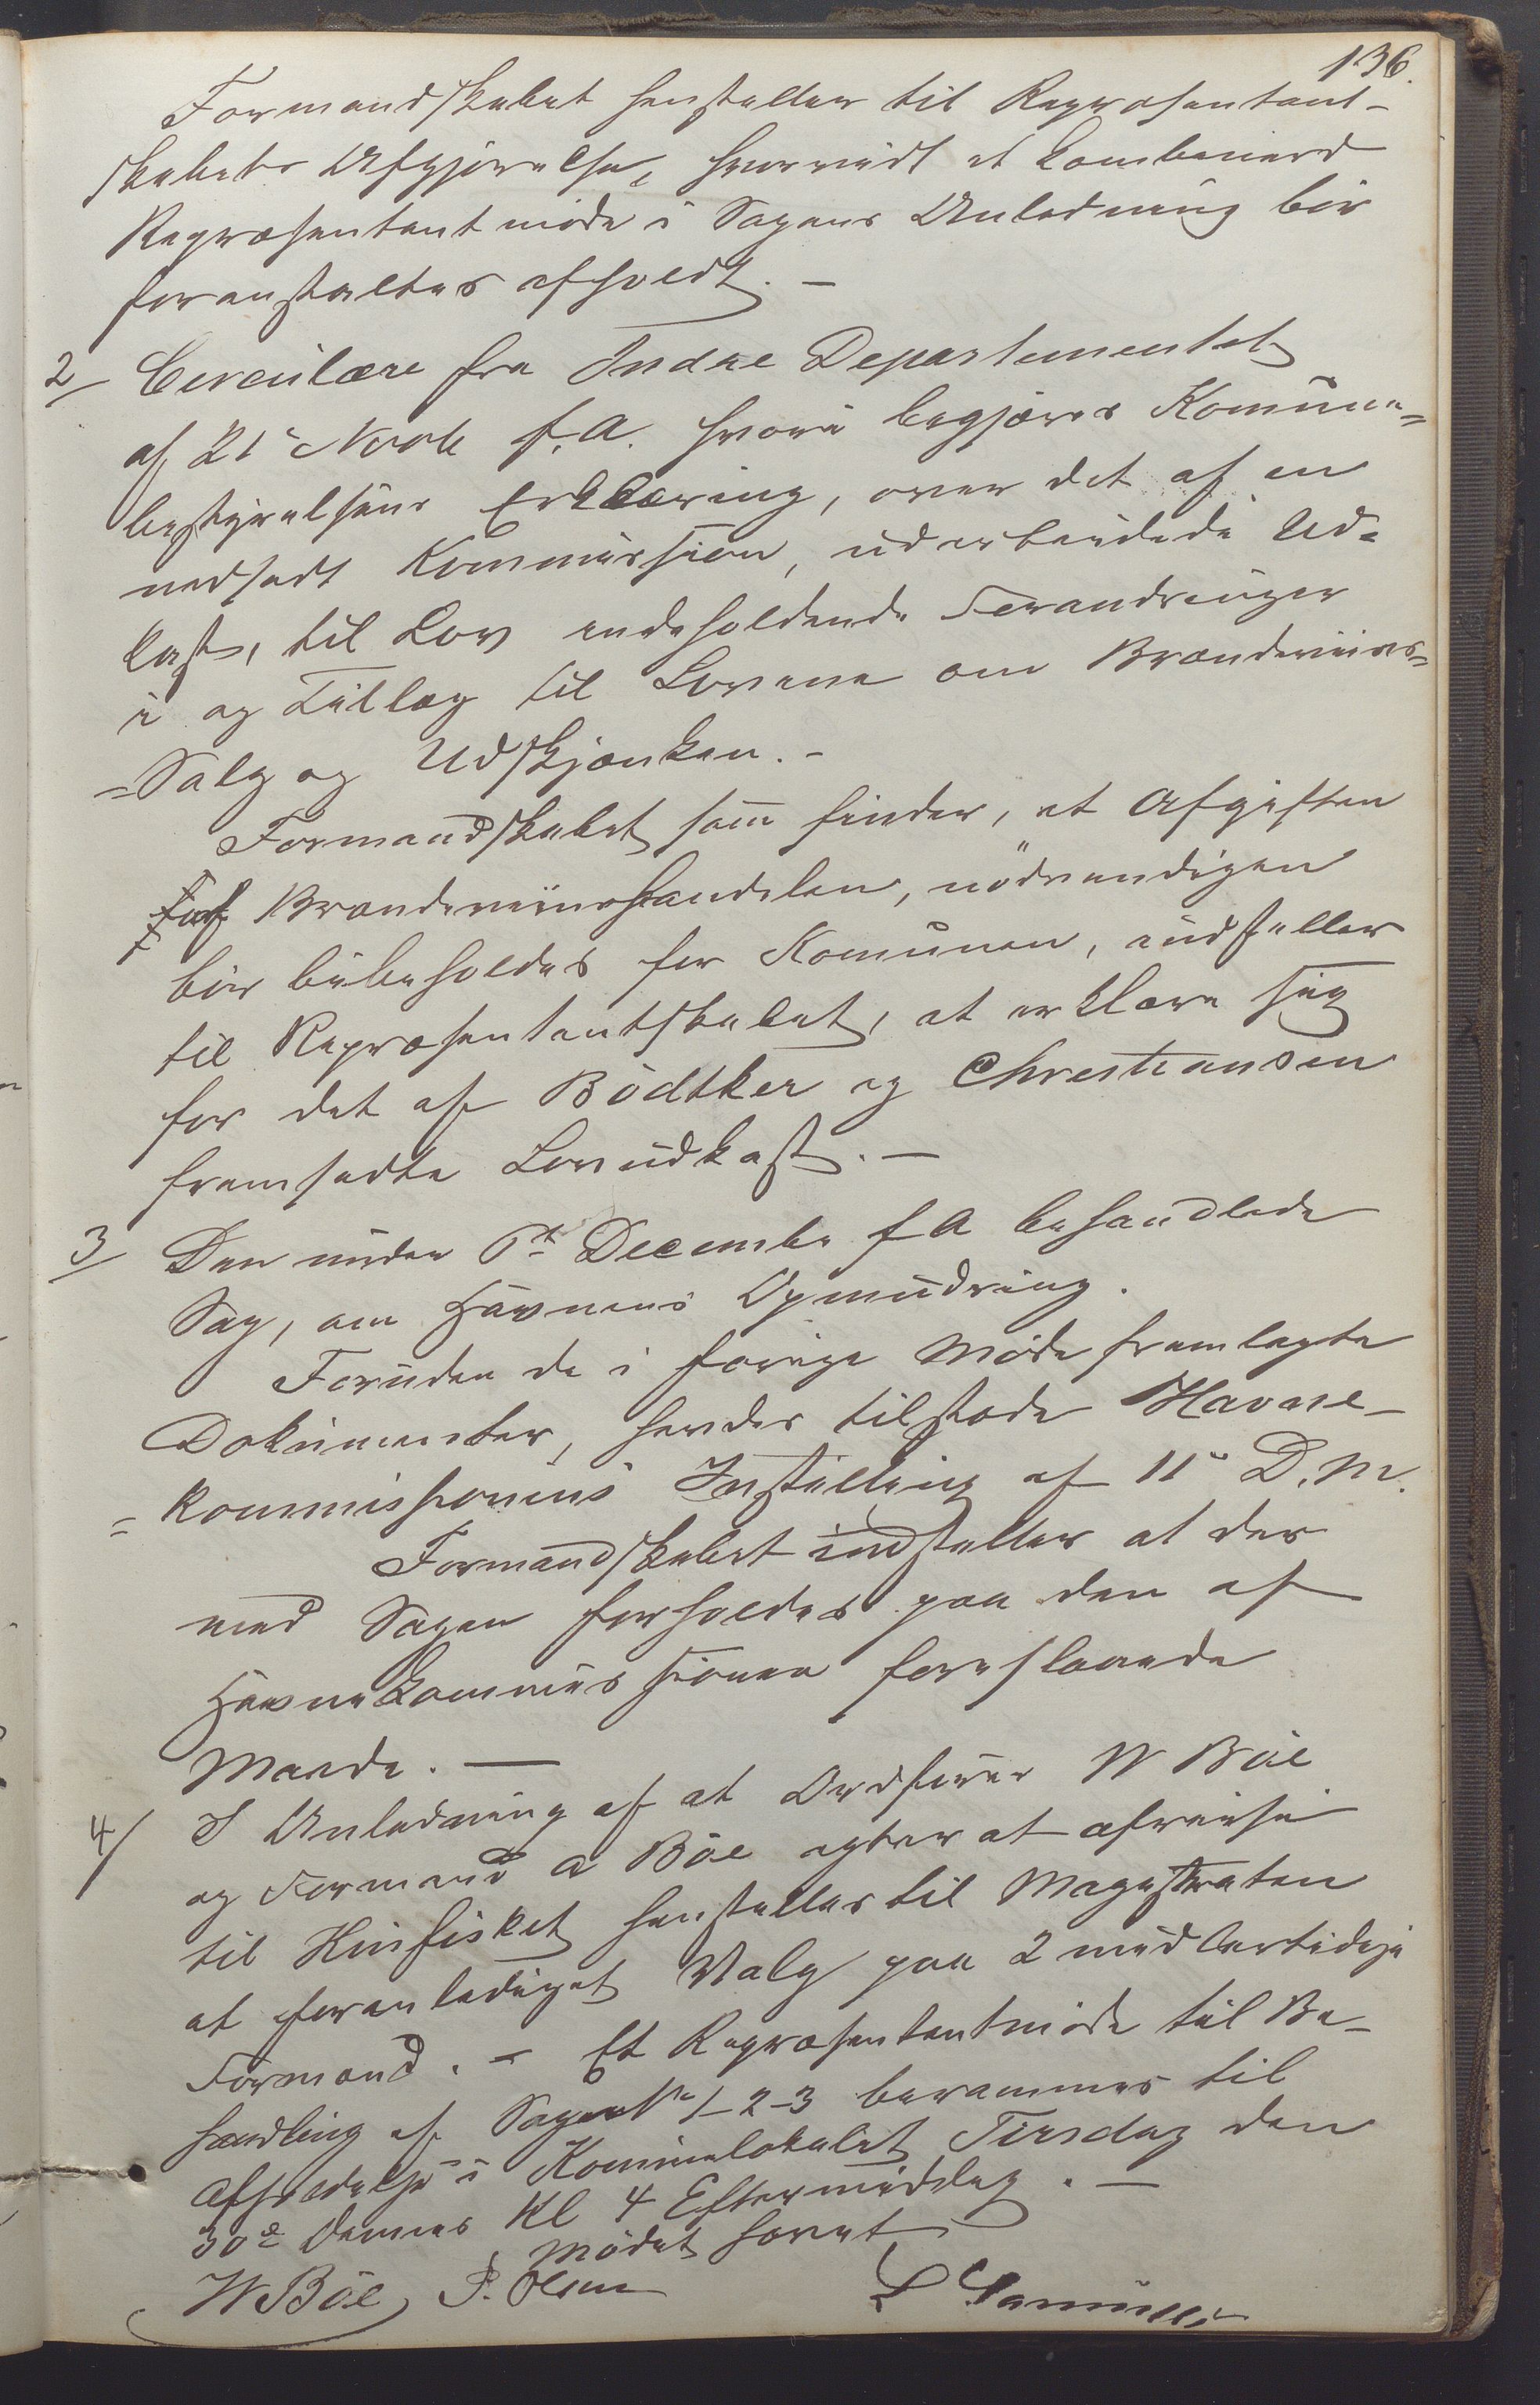 136.
Formandskabet henstiller til Repræsentant-
skabets Afgjørelse, hvorvidt et kombinerd
Repræsentantmøde i Sagens Anledning bør
foranstaltes afholdt. -
2/ Circulære fra Indre Departementet
af 21 Novbr f. A. hvori begjæres Komune-
bestyrelsens Erklæring, over det af en
nedsadt Kommission, udarbeidede Ud-
kast, til Lov indeholdende Forandringer
i og Tillæg til Lovene om Brændeviins-
=Salg og Udskjænken. -
Formandskabet som finder, at Afgiften
af Brændeviinshandelen, nödvendigen
bør bibeholdes for Komunen, indstiller
til Repræsentantskabet, at erklære sig
for det af Bödtker og Christiansen
fremsatte Lovudkast. -
3/ Den under 6te December f A behandlede
Sag, om Havnens Opmudring.
Foruden de i forrige Møde fremlagte
Dokumenter, havdes tilstede Havne-
=kommissionens Instilling af 11 D. M.
Formandskabet indstiller at der
med Sagen forholdes paa den af
Havnekommissionen foreslaaede
Maade. -
4/ I Anledning af at Ordfører W Böe
og Formand A Böe agter at afreise
til Kinfisket henstilles til Magistraten
at foranlediget Valg paa 2 midlertidige
Formænd. - Et Repræsentantmöde til Be-
handling af Sagerne No 1-2-3 berammes til
Afholdelse i Komunelokalet Tirsdag den
30e Dennes Kl 4 Eftermiddag. -
Mödet hævet
W Böe P. Olsen L